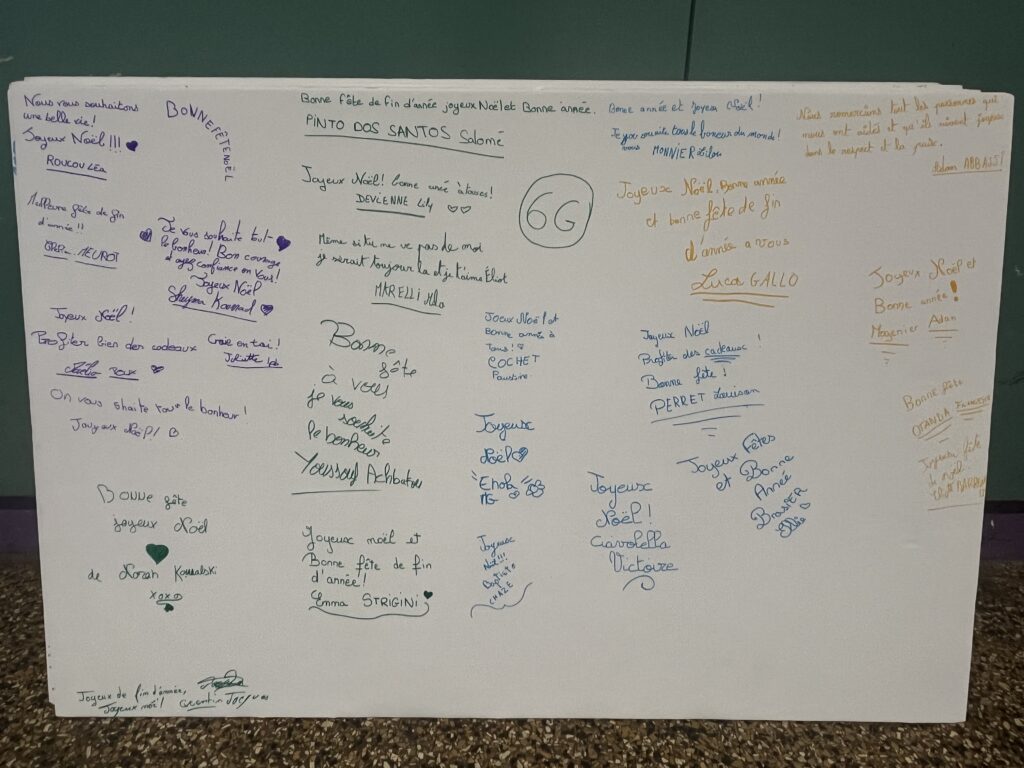 Nous vous souhaitons
une belle vie!
Joyeux Noël!!!
ROUCOU Léa
BONNE FÊTE NOËL
Meilleure fête de fin
d'année!!
NEUROT
Je vous souhaite tout
le bonheur! Bon courage
et ayez confiance en vous!
Joyeux Noël
Joyeux Noël!
Profiter bien des cadeaux
ROUX
Croie en toi!
Juliette
On vous shaite tous le bonheur!
Joyeux Noël!
Bonne fête
joyeux Noël
de Norah Kowalski
xoxo
Joyeux de fin d'année,
Joyeux noël!
Quentin JACQUES
Bonne fête de fin d'année joyeux Noël et Bonne année.
PINTO DOS SANTOS Salomé
Joyeux Noël! bonne année à tous!
DEVIENNE Lily
Même si tu me ve pas de mot
je serait toujour la et je t'aime Eliot
MARELLI
6G
Bonne
fête
à vous
je vous
souhaite
le bonheur
Youssouf
Joyeux noël et
Bonne fête de fin
d'année!
Emma STRIGINI
Bonne année à
Tous!
COCHET
Faustine
Joyeux
Noël
Joyeux
Noël!!!
Baptiste
CHAZE
Bonne année et Joyeux Noël!
Je vous souaite tous le boneur du monde!
MONNIER Lilou
Joyeux Noël, Bonne année
et bonne fête de fin
d'année a vous
Luca GALLO
Joyeux Noël
Profiter des cadeaux!
Bonne fête!
PERRET Louison
Joyeux Fêtes
et Bonne
Année
Joyeux
Noël!
Ciavolella
Victoire
Nous remercions tout les personnes qui
nous ont aidés et qu'ils vivent joyeux
dans le respect et la paix.
Adam ABBASSI
Joyeux Noël et
Bonne année!
Magenier Adan
Bonne fête
OTANDA
fête